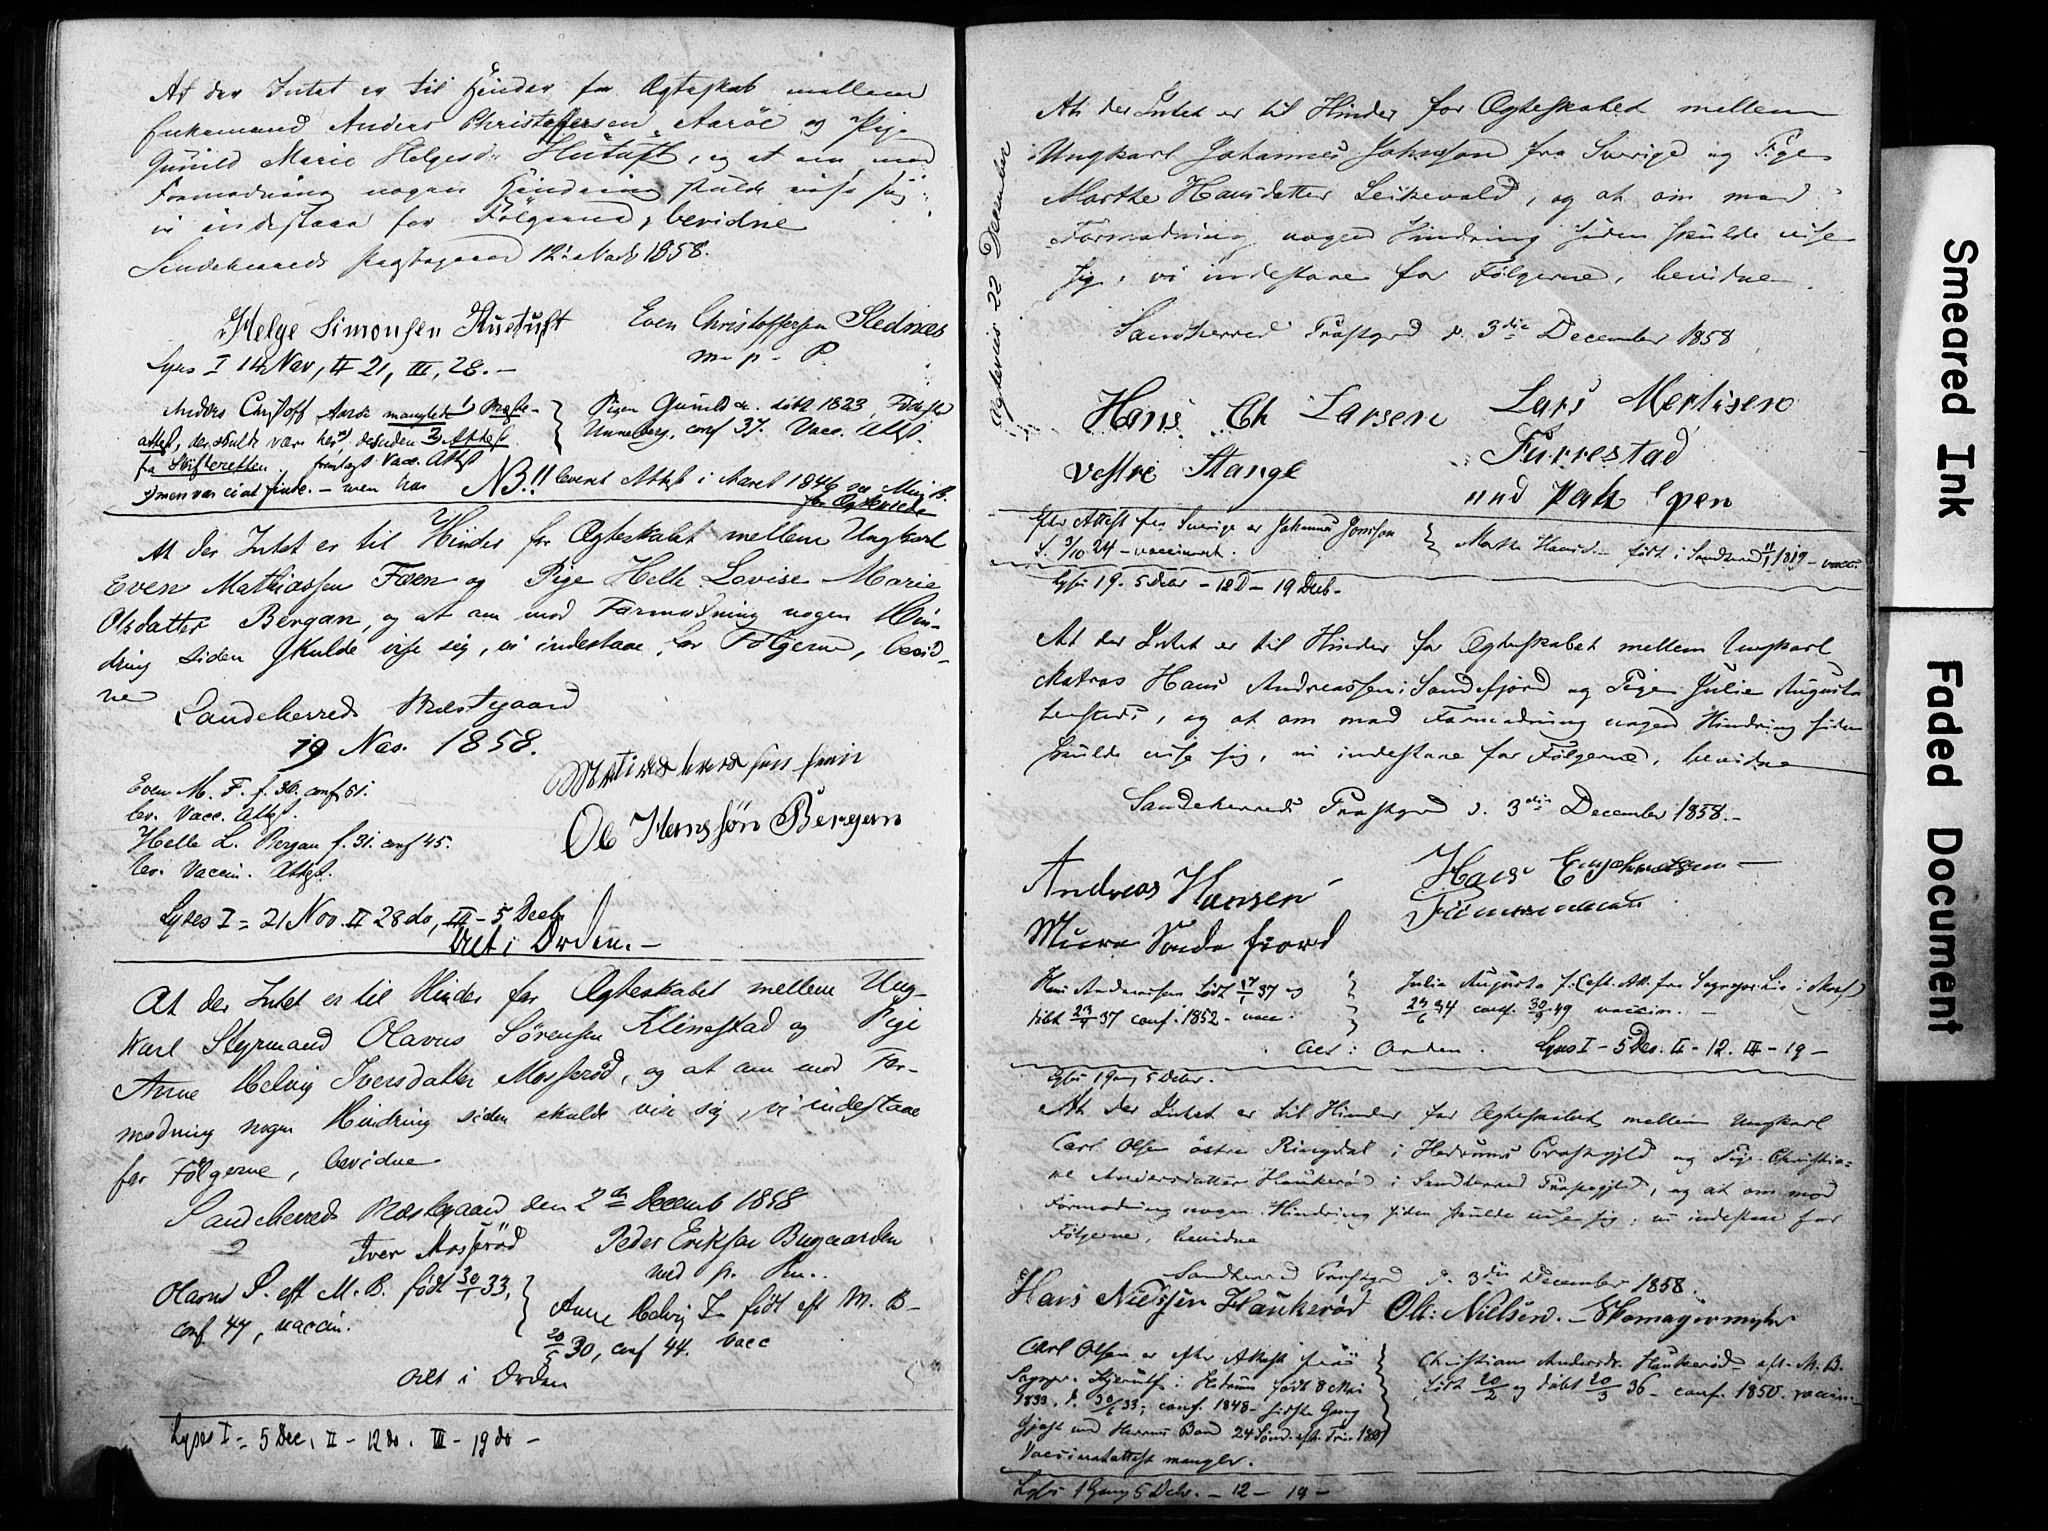 At der Intet er til Hinder for Ægteskab mellem
Enkemand Anders Christoffersen Aarøe og Pige
Gunild Marie Helgesd. Hutuft, og at om mod
Formodning nogen Hindring skulde vise sig,
vi indestaae for Følgerne, bevidne
Sandeherreds Prægtegaard 12te Novb 1858.
Helge Simonsen Hustuft Even Christoffersen Stednæs
m. p. P.
Lyses I 14 Nov, II 21, III, 28. -
Anders Christoff Aarøe manglede Præste-
attest, der skulde være her, desuden Attest
fra Skifteretten. fremlagt Vacc. Attest
Pigen Gunild døbt 1823, Fødested
Unneberg, conf 37. Vacc. Attst.
men var ei at finde. - men har NB!! levert Attest i Aaret 1846 se Min. B.
for Ægteviede
At der Intet er til Hinder for Ægteskabet mellem Ungkarl
Even Mathiassen Fæen og Pige Helle Lovise Marie
Olsdatter Bergan, og at om mod Formodning nogen Hin-
dring siden skulde vise sig, vi indestaae for Følgerne, bevid-
ne
Sandeherreds Præstegaard
19 Nov. 1858.
Even M. F. f. 30. conf 51.
lev. Vacc. Attst.
Helle L. Bergan f. 31. conf 45.
lev. Vaccin. Attst.
Ole Hanssøn Bergan
Lyses I = 21 Nov. II 28 do, III - 5 Decb
Alt i Orden. -
At der Intet er til Hinder for Ægteskabet mellem Ung-
karl Styrmand Olavus Sørensen Klinestad og Pige
Anne Helvig Iversdatter Mosserød, og at om mod For-
modning nogen Hindring siden skulde vise sig, vi indestaae
for Følgerne, bevidne
Sandeherreds Præstegaard den 2den Decemb 1858
Iver Mosserød Peder Eriksen Bugaarden
med p. Pen.
Olavus S. eft M. B. født 30/1 33,
conf 47, vaccin.
Anne Helvig I. født eft M. B.
20/5 30, conf 44. vacc
Alt i Orden
Lyses I = 5 Dec, II - 12 do. III - 19 do -
Ægteviet 22 December
At der Intet er til Hinder for Ægteskabet mellem
Ungkarl Johannes Johnson fra Sverige og Pige
Marthe Hansdatter Leikevold, og at om mod
Formodning nogen Hindring siden skulde vise
sig, vi indestaae for Følgerne, bevidne
Sandherred Præstgrd d. 3die December 1858
Hans Ch Larsen Lars Mortisen
Vestre Stange Furrestad
med paah Pæn
Efter Attest fra Sverige er Johannes Jonsson
f. 3/10 24 - vaccineret.
Marthe Hansd. født i Sandherred 11/1 1819 - vacc.
Lyst 1 G. 5 Decbr - 12 D - 19 Decb.
At der Intet er til Hinder for Ægteskabet mellem Ungkarl
Matros Hans Andreassen i Sandefjord og Pige Julie Augusta
, og at om mod Formodning nogen Hindring siden
skulde vise sig, vi indestaae for Følgerne, bevidne
Sandeherreds Præstgrd d. 3die December 1858. -
Andreas Hansen Hans
Murer Sandefjord
Hans Andreassen født 17/1 37 og
døbt 23/4 37 conf. 1852. vacc.
Julie Augusta f. (eft. Att. fra Sogneprest i Moss)
24/6 34 conf. 30/9 49 vaccin. -
Alt i Orden. Lyses I - 5 Dec. II - 12. III - 19 -
Lyst 1 Gang 5 Decbr.
At der Intet er til Hinder for Ægteskabet mellem Ungkarl
Carl Olsen østre Ringdal i Hedrums Præstgjeld og Pige Christia-
ne Andersdatter Haukerød i Sandherred Præstegjeld, og at om mod
Formodning nogen Hindring siden skulde vise sig, vi indestaae for
Følgerne, bevidne
Sandherred Præstgrd d. 3die December 1858.
Hans Nielsen Haukerød Ole Nielsen. - Skomagermester
Carl Olsen er efter Attest fra
Sognepr. Hjerulf i Hedrum født 8 Mai
1833, d. 30/6 33; conf. 1848 - sidste Gang
Gjest ved Herrens Bord 24 Sønd. eft. Trin 1858
Vaccinatattest mangler.
Christiane Andersdr. Haukerød eft. M. B.
født 20/2 og døbt 20/3 36 - conf. 1850. vaccin
Lyst 1 Gang 5 Decbr. - 12 - 19 -
Smeared Ink
Faded Document